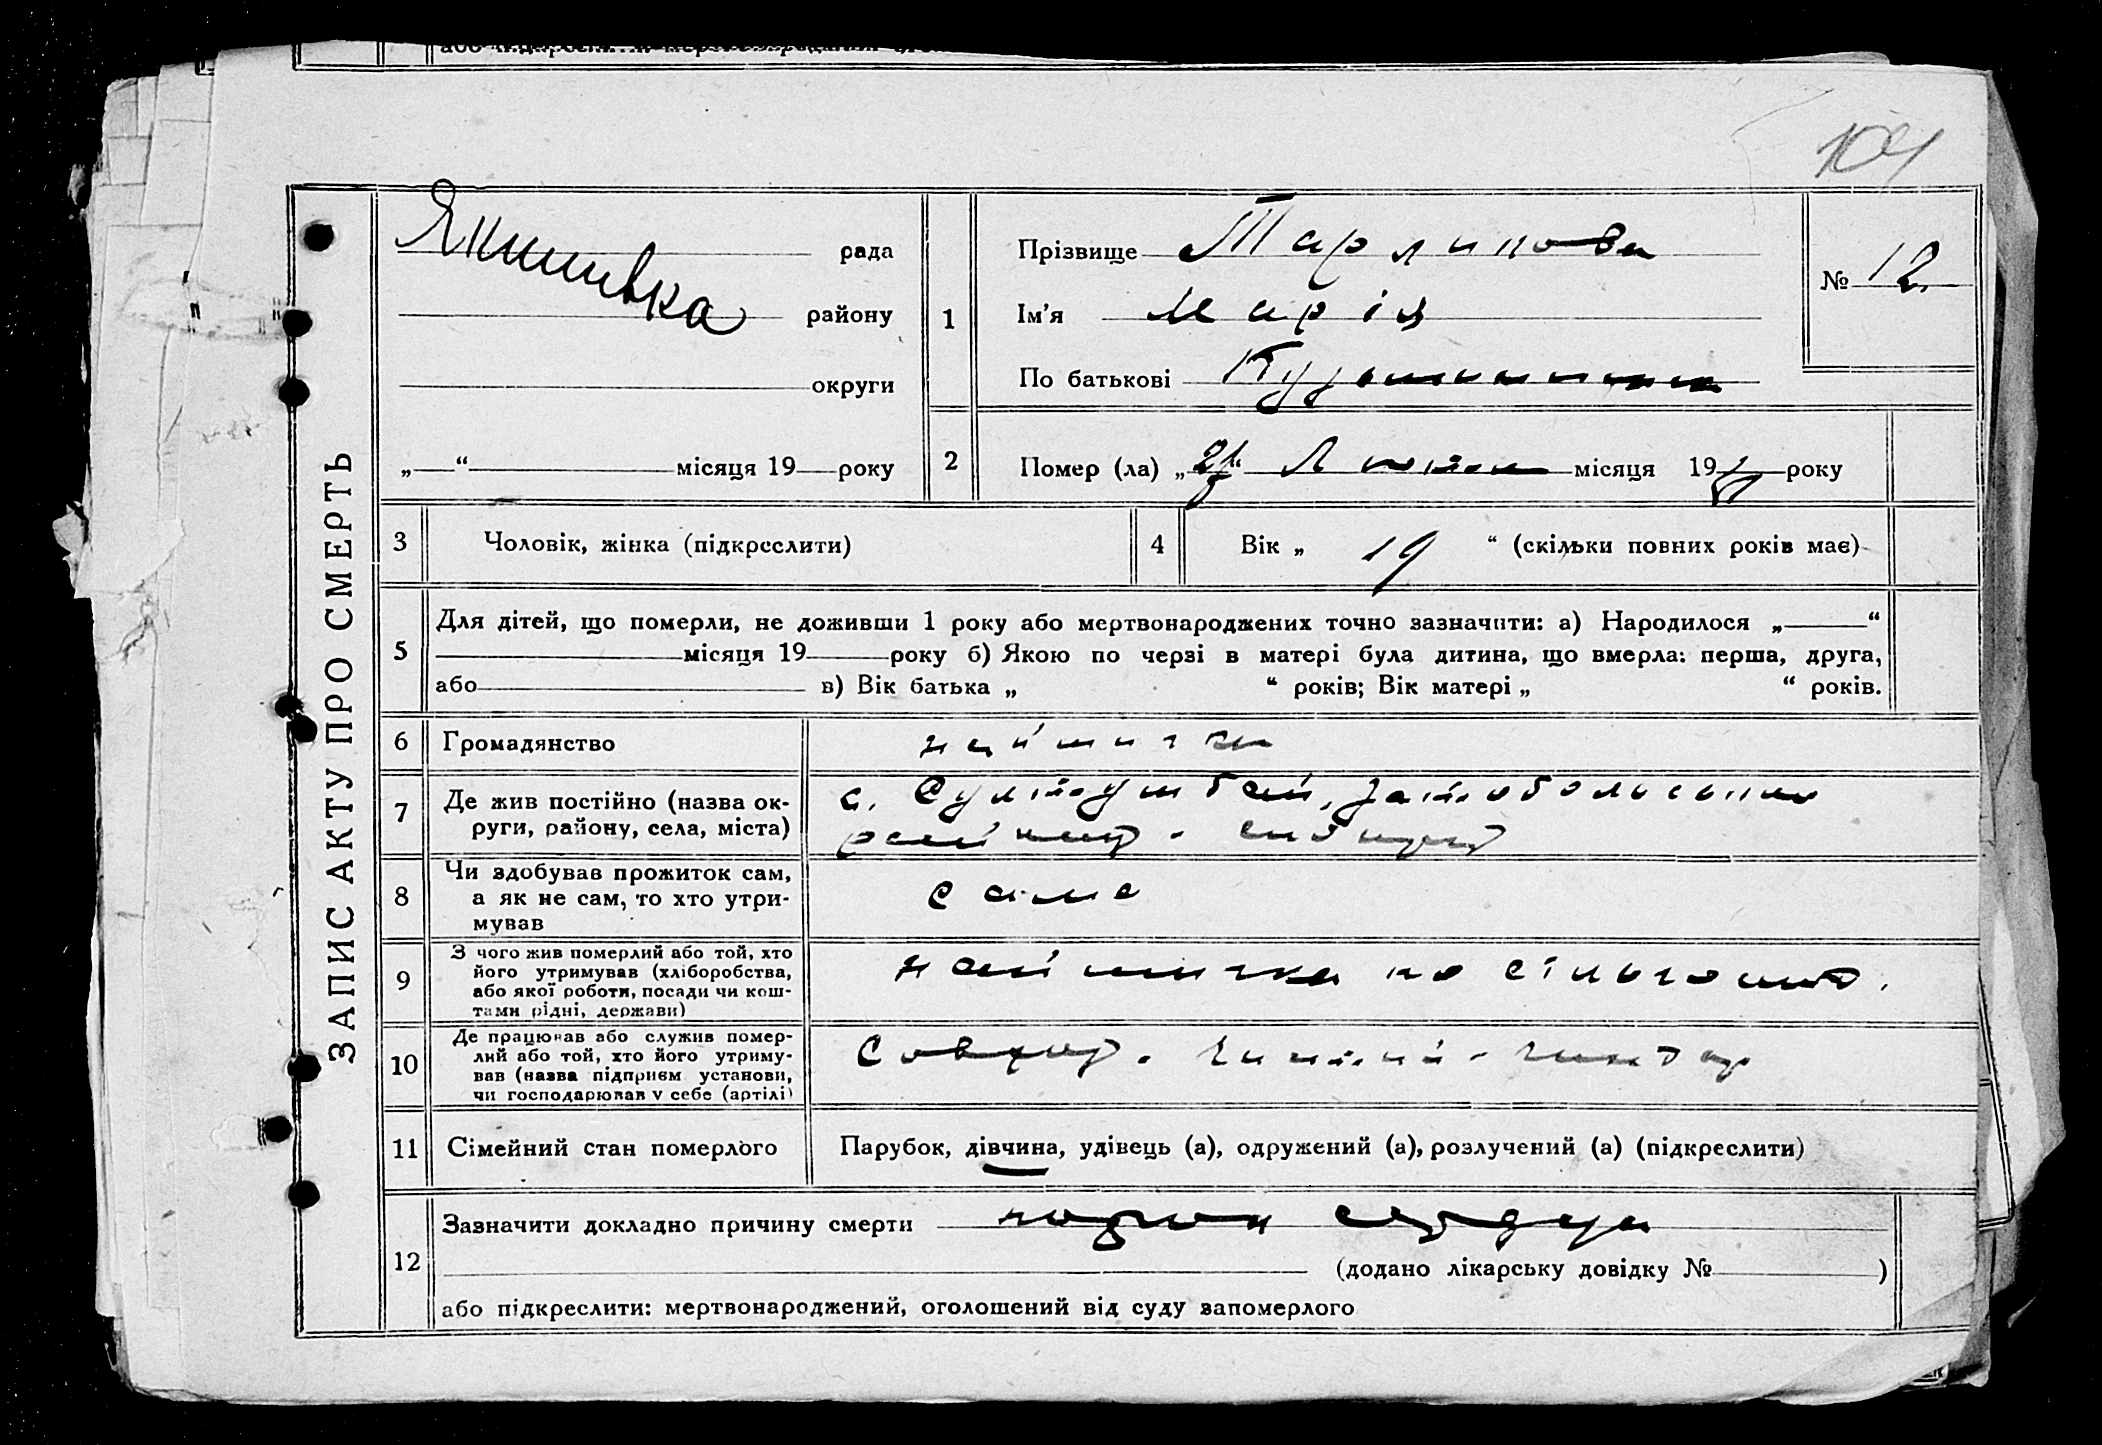 104
ЗАПИС АКТУ ПРО СМЕРТЬ
Якимівка рада
району
округи
„ “ місяця 19 року
1 Прізвище Тарлинова
Ім'я Марія
По батькові
№ 12
2 Помер (ла) „ “ місяця 19 року
3 Чоловік, жінка (підкреслити)
4 Вік „ 19 “ (скільки повних років має)
5 Для дітей, що померли, не доживши 1 року або мертвонароджених точно зазначити: а) Народилося „ “
місяця 19 року б) Якою по черзі в матері була дитина, що вмерла: перша, друга,
або в) Вік батька „ “ років; Вік матері „ “ років.
6 Громадянство наймичка
7 Де жив постійно (назва ок-
руги, району, села, міста)
с.
району
8 Чи здобував прожиток сам,
а як не сам, то хто утри-
мував
сама
9 З чого жив померлий або той, хто
його утримував (хліборобства,
або якої роботи, посади чи кош-
тами рідні, держави)
наймичка по
10 Де працював або служив помер-
лий або той, хто його утриму-
вав (назва підприєм установи,
чи господарював у себе (артілі)
Совхоз
11 Сімейний стан померлого
Парубок, дівчина, удівець (а), одружений (а), розлучений (а) (підкреслити)
12 Зазначити докладно причину смерти порок сердця
(додано лікарську довідку № )
або підкреслити: мертвонароджений, оголошений від суду запомерлого